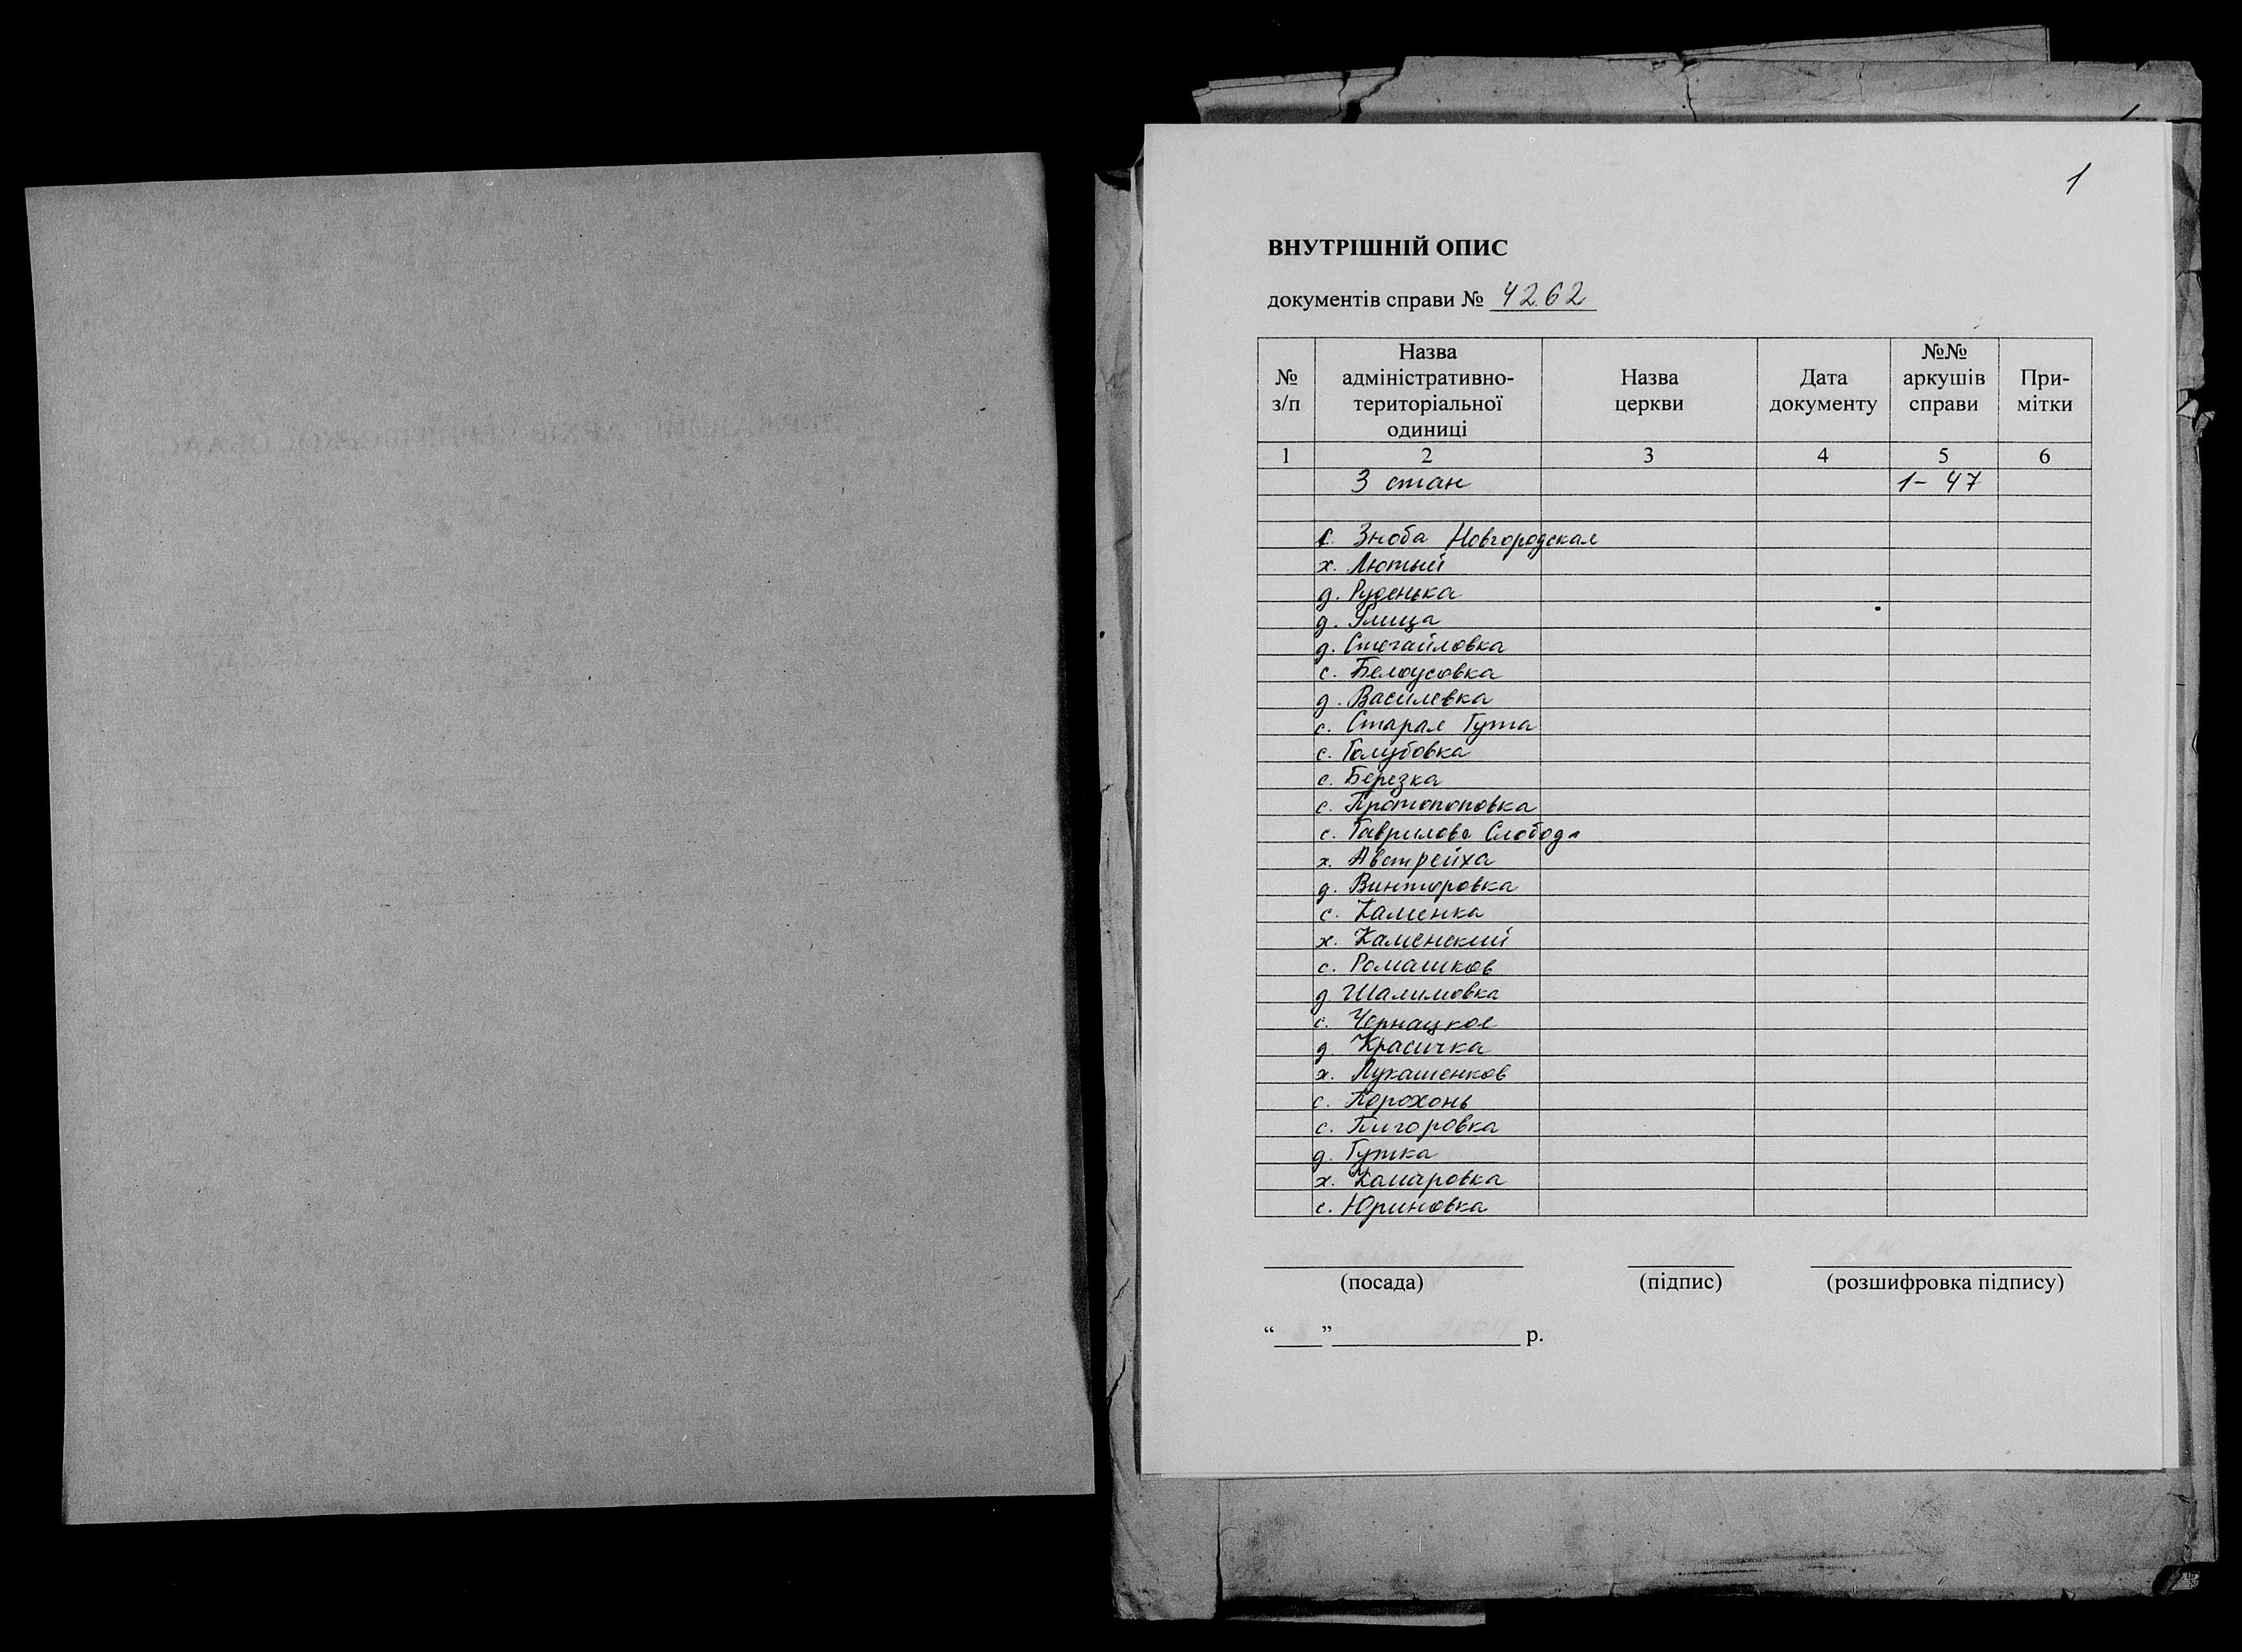 1
ВНУТРІШНІЙ ОПИС
документів справи № 4262
№ з/п | Назва адміністративно-територіальної одиниці | Назва церкви | Дата документу | №№ аркушів справи | При-мітки
1 2 3 4 5 6
3 стан 1-47
с. Зноба Новгородская
х. Лютый
д. Руденька
д. Улица
д. Стегайловка
с. Белоусовка
д. Василевка
с. Старая Гута
с. Голубовка
с. Березка
с. Протопоповка
с. Гаврилова Слобода
х. Австрейха
д. Винторовка
с. Каменка
х. Каменский
с. Ромашков
д. Шалимовка
с. Чернацкое
д. Красичка
х. Лукашенков
с. Порохонь
с. Пигоровка
д. Гутка
х. Комаровка
с. Юриновка
(посада) (підпис) (розшифровка підпису)
“ ” р.